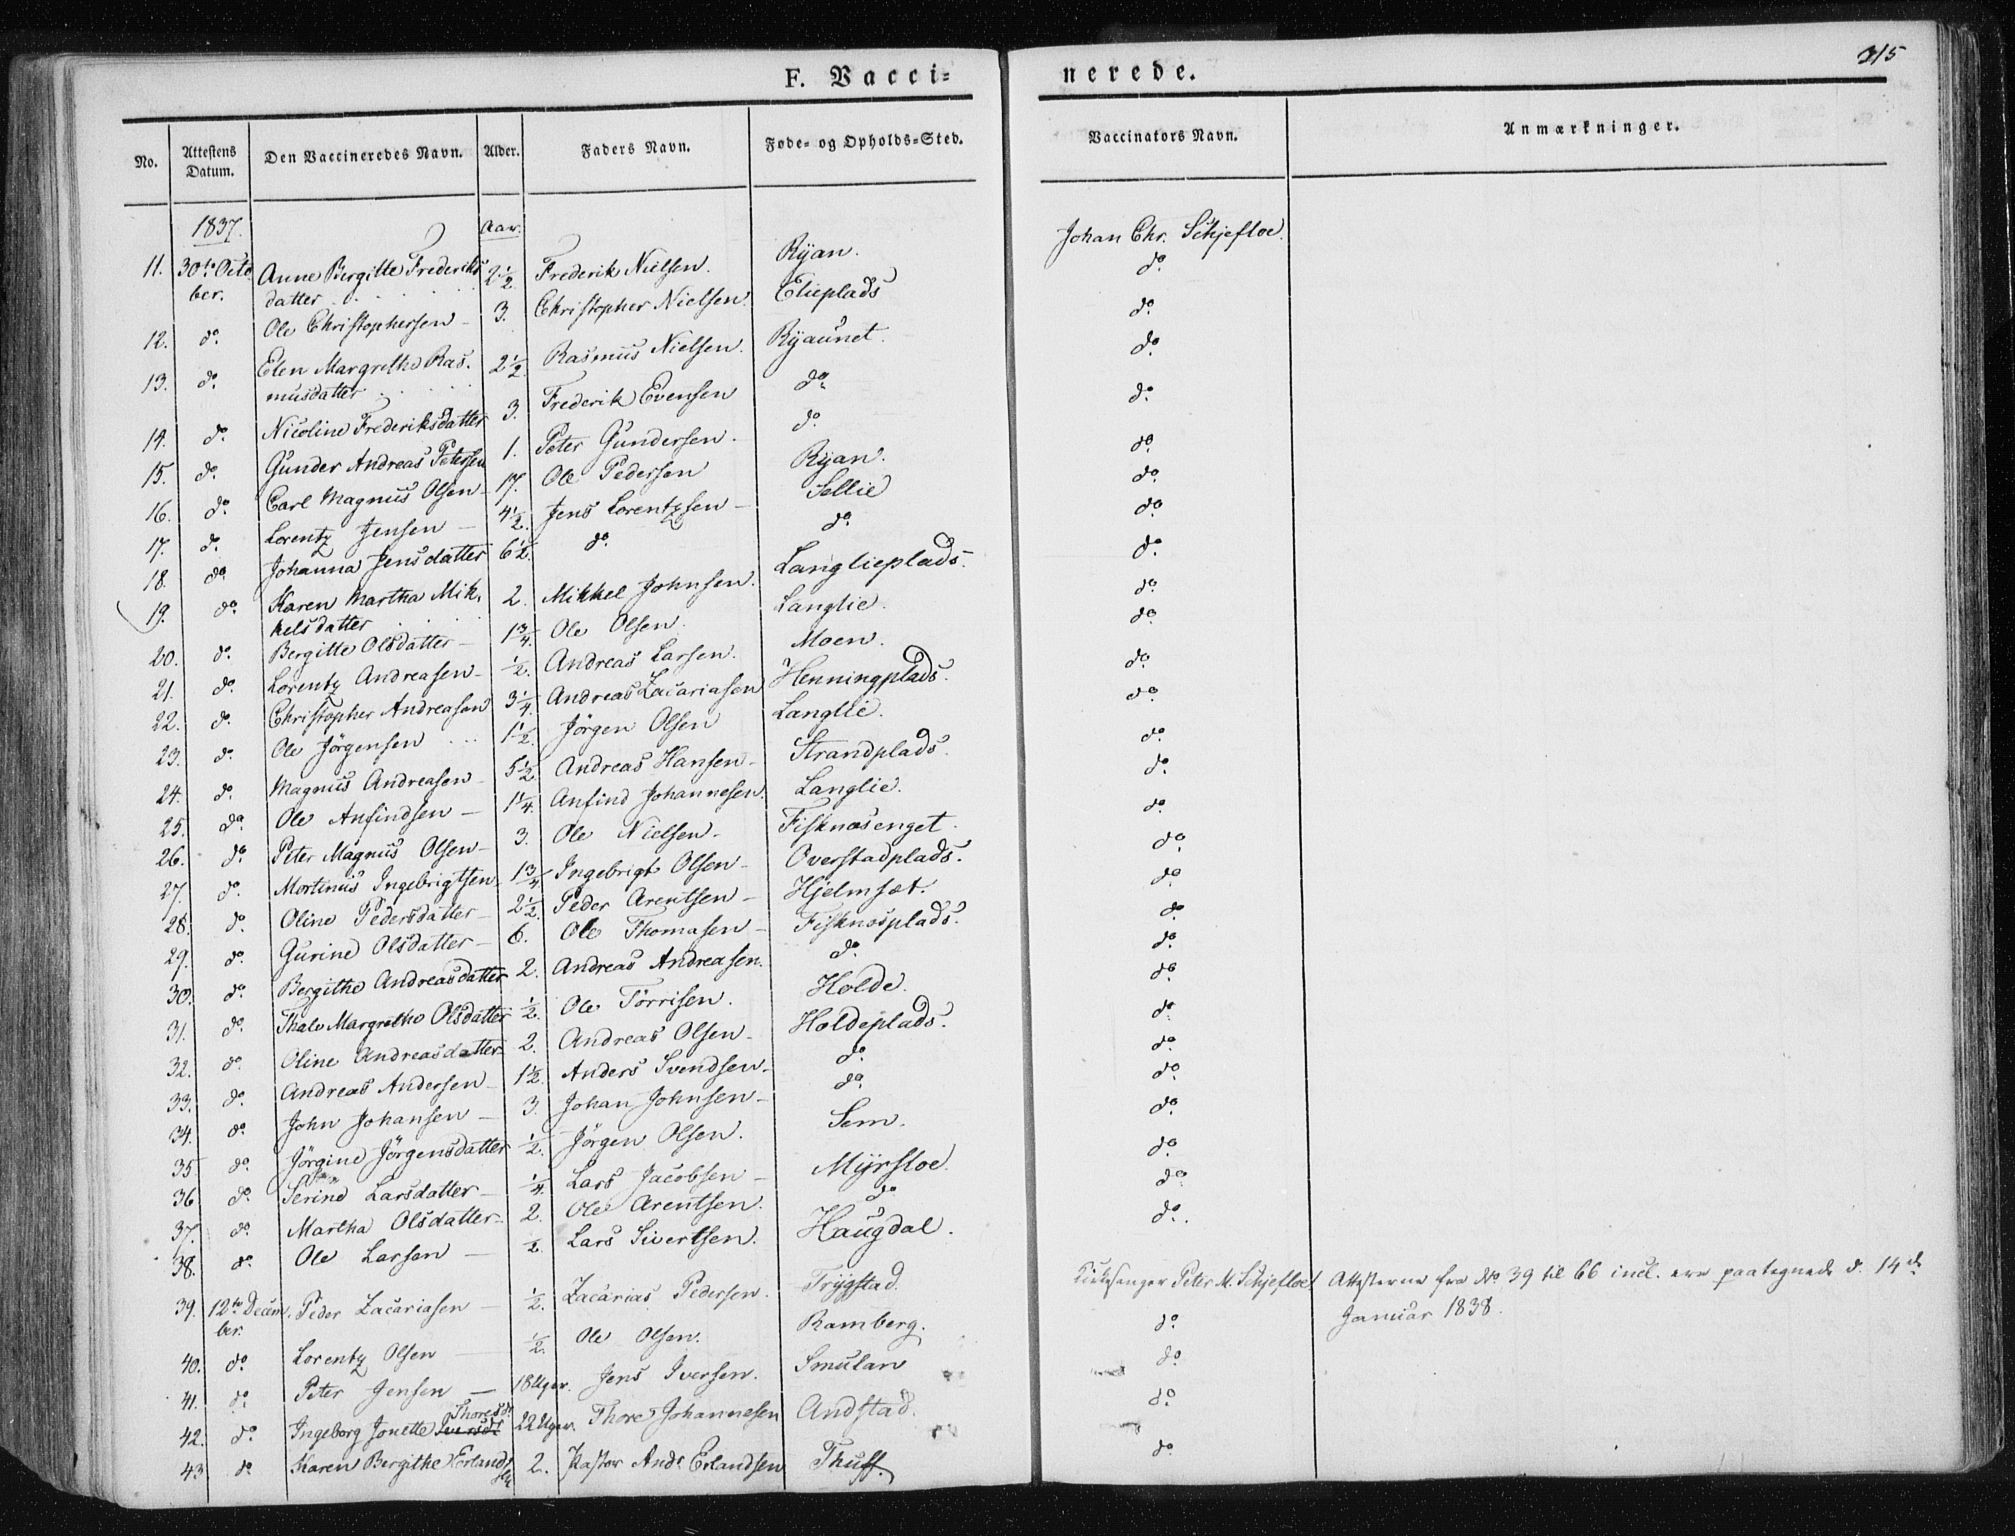 F. Vacci=
nerede.
315
No.
Attestens Datum.
Den Vaccineredes Navn.
Alder.
Faders Navn.
Føde- og Opholds=Sted.
Vaccinators Navn.
Anmærkninger.
1837.
Aar.
11. 30te Octo Anne Bergitte Frederiks 2½ Frederik Nielsen. Ryan. Johan Chr. Schjefloe.
ber. datter
12. do. Ole Christophersen 3. Christopher Nielsen. Elieplads do.
13. do. Elen Margrethe Ras- 2½. Rasmus Nielsen. Ryaunet. do.
musdatter
14. do. Nicoline Frederiksdatter 3. Frederik Evensen do. do.
15. do. Gunder Andreas Petersen 1. Peter Gundersen. do. do.
16. do. Carl Magnus Olsen 17. Ole Pedersen Ryan. do.
17. do. Lorentz Jensen 4½. Jens Lorentzsen Sellie do.
18. do. Johanna Jensdatter 6½. do. do. do.
19. do. Karen Martha Mik- 2. Mikkel Johnsen. Langlieplads. do.
kelsdatter
20. do. Bergitte Olsdatter 1¾ Ole Olsen. Langlie. do.
21. do. Lorentz Andreasen ½. Andreas Larsen. Moen. do.
22. do. Christopher Andreasen 3¼. Andreas Zacariasen Henningplads. do.
23. do. Ole Jörgensen 1½. Jörgen Olsen Langlie. do.
24. do. Magnus Andreasen 5½ Andreas Hansen Strandplads. do.
25. do. Ole Anfindsen 1¼. Anfind Johannesen. Langlie. do.
26. do. Peter Magnus Olsen 3. Ole Nielsen. Fisknæsenget. do.
27. do. Mortinus Ingebrigtsen 1¾ Ingebrigt Olsen Overstadplads. do.
28. do. Oline Pedersdatter 2½. Peder Arentsen Hjelmsæt. do.
29. do. Gurine Olsdatter 6. Ole Thomasen Fisknæsplads. do.
30. do. Bergithe Andreasdatter 2. Andreas Andreasen. do. do.
31. do. Thale Margrethe Olsdatter ½. Ole Törrisen. Holde. do.
32. do. Oline Andreasdatter 2. Andreas Olsen Holdeplads. do.
33. do. Andreas Andersen 1½. Anders Svendsen do. do.
34. do. John Johansen 3. Johan Johnsen do. do.
35 do. Jörgine Jörgensdatter ½. Jörgen Olsen. Sem. do.
36 do. Serine Larsdatter ¼. Lars Jacobsen Myrsloe. do.
37. do. Martha Olsdatter 2. Ole Arentsen. do. do.
38. do. Ole Larsen ½. Lars Sivertsen. Haugdal. do.
39. 12te Decem Peder Zacariasen ½. Zacarias Pedersen. Trygstad. Kirkesanger Peter M. Schjefloe Attesterne fra No 39 til 66 incl. ere paategnede d. 14de
ber. Januar 1838.
40. do. Lorentz Olsen ½. Ole Olsen. Ramberg. do.
41. do. Peter Jensen 18 Uger. Jens Iversen. Smulan do.
Thoresdr
42. do. Ingeborg Jonette Iversdr 22 Uger. Thore Johannesen Andstad. do.
43 do. Karen Bergithe Erlands 2. Pastor Andr. Erlandsen Thuff. do.